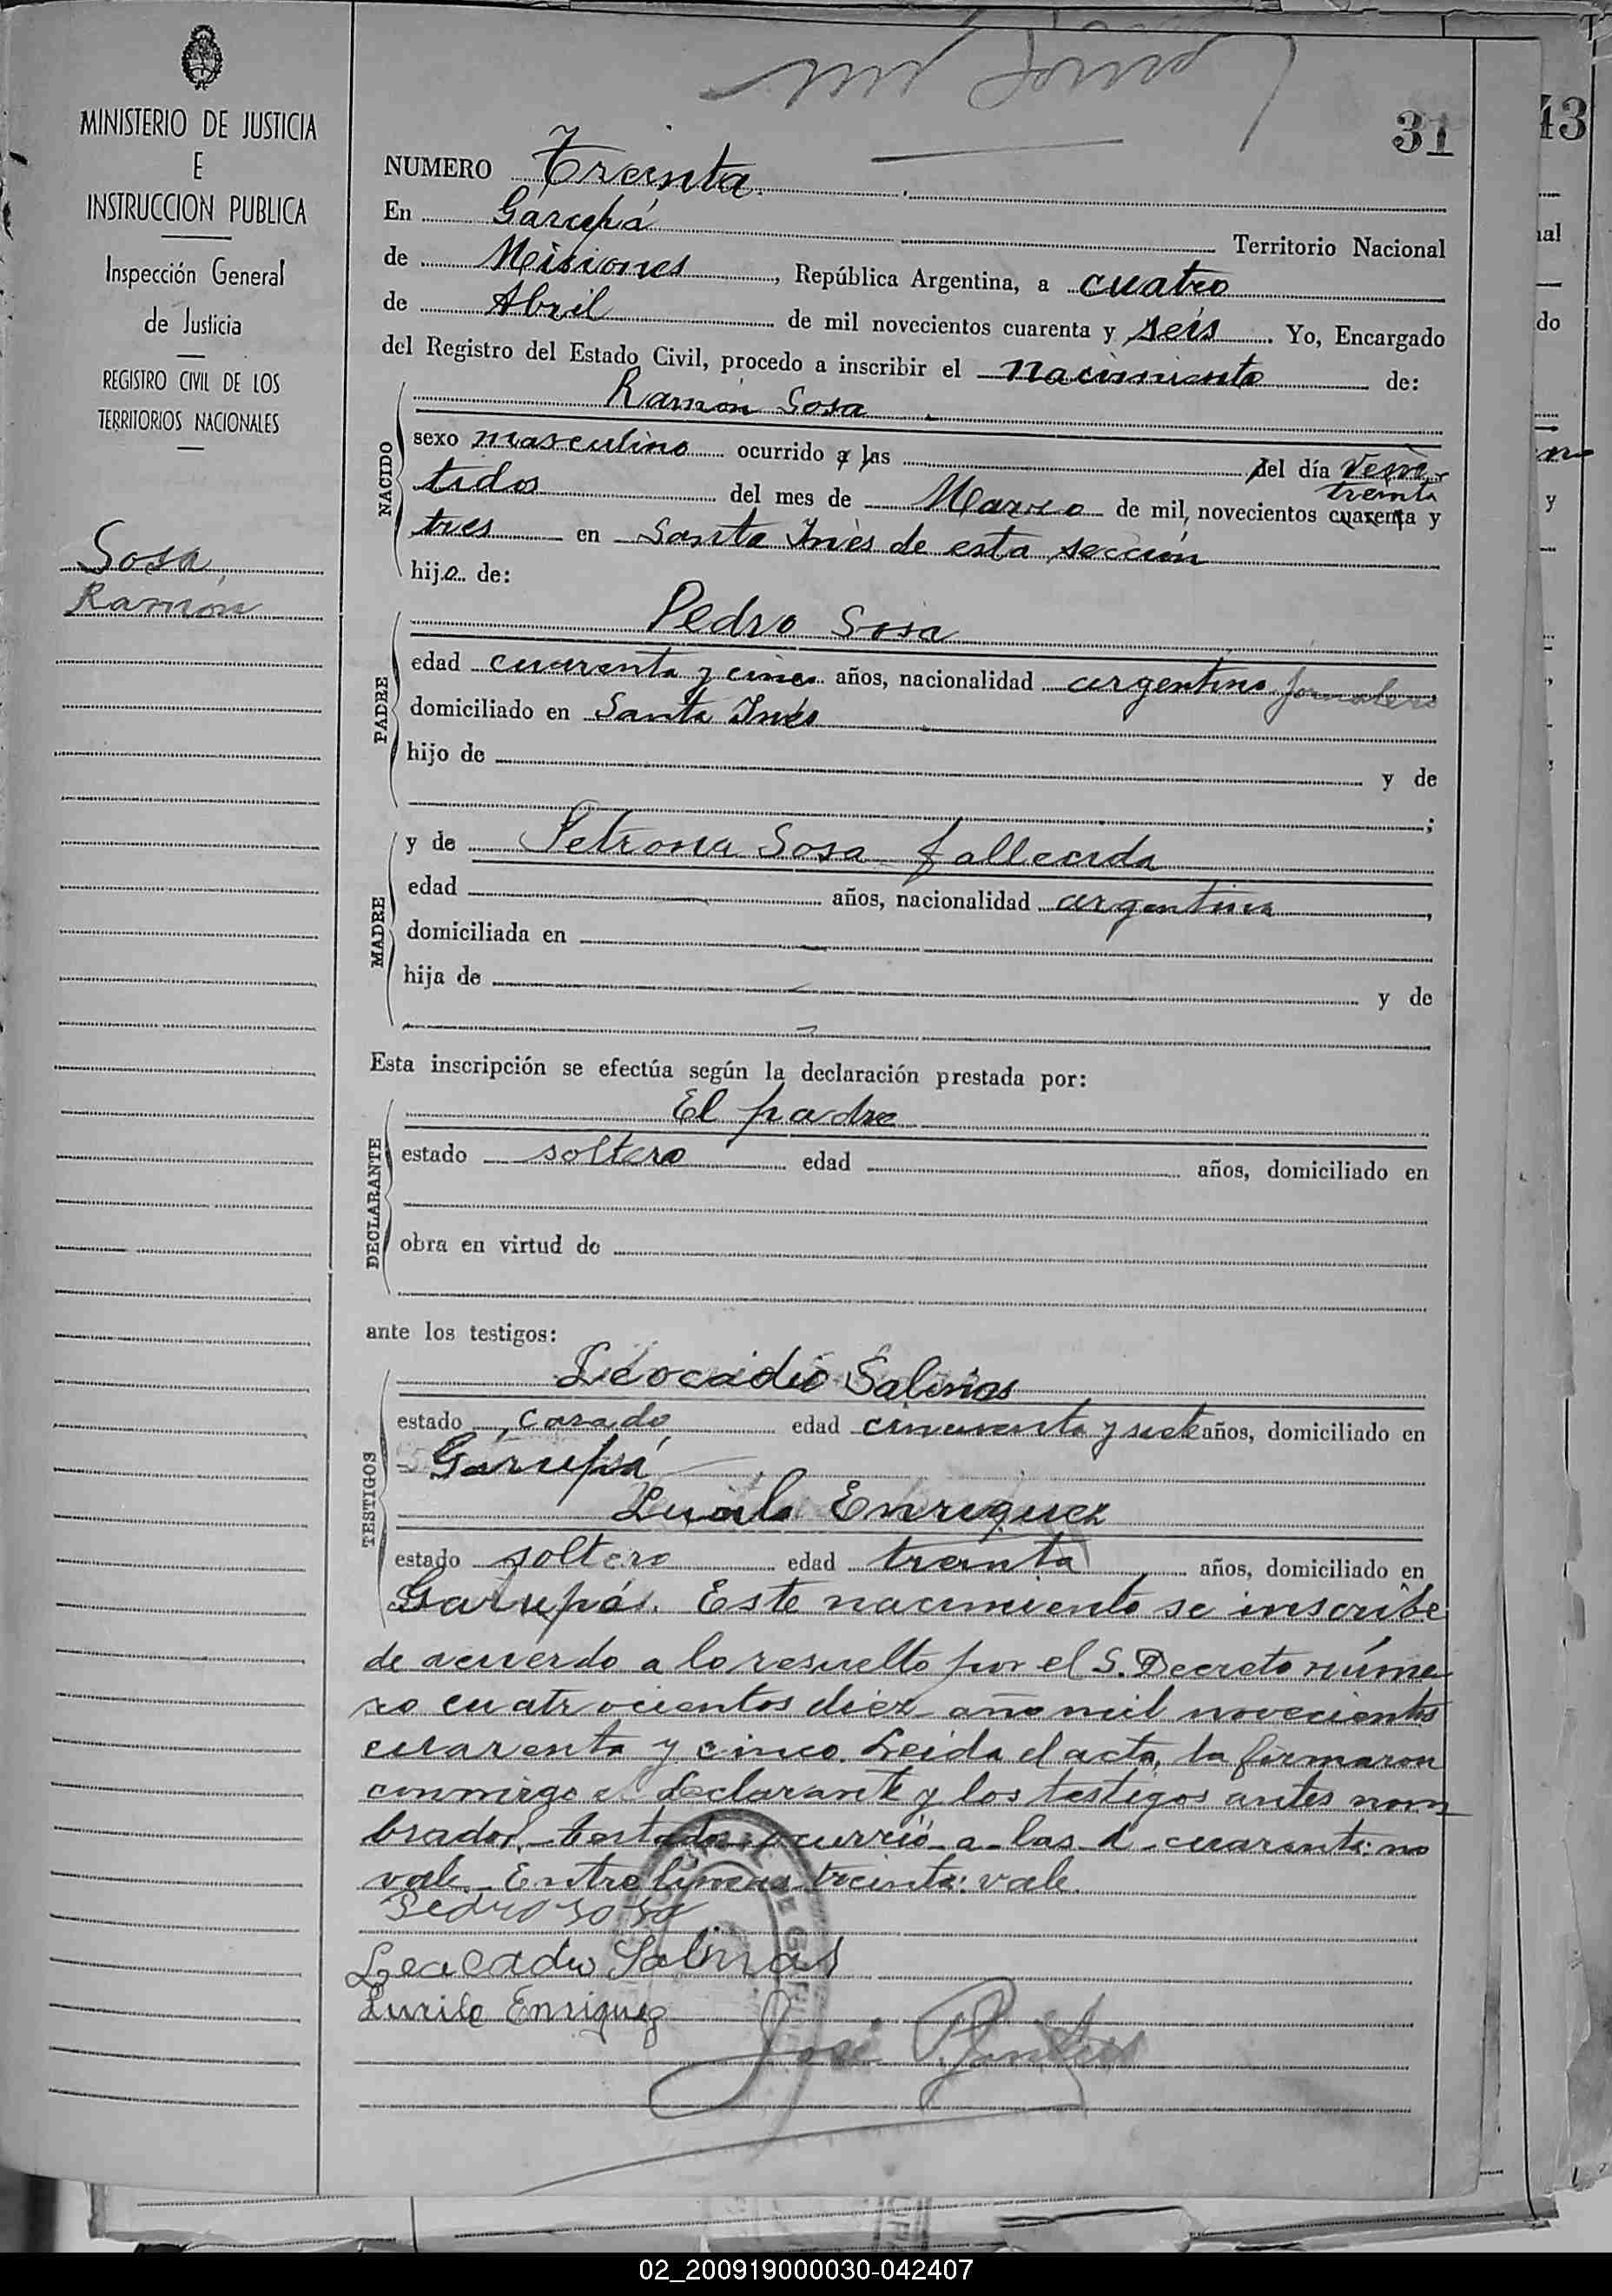 MINISTERIO DE JUSTICIA
E
INSTRUCCION PUBLICA
Inspección General
de Justicia
REGISTRO CIVIL DE LOS
TERRITORIOS NACIONALES
Sosa,
Ramón
31
43
NUMERO Treinta.
En Garupá Territorio Nacional
de Misiones, República Argentina, a cuatro
de Abril de mil novecientos cuarenta y seis. Yo, Encargado
del Registro del Estado Civil, procedo a inscribir el nacimiento de:
NACIDO
Ramón Sosa
sexo masculino ocurrido a las del día vein-
tidos del mes de Marzo de mil novecientos cuarenta y
treinta
tres en Santa Inés de esta sección
hijo de:
PADRE
Pedro Sosa
edad cuarenta y cinco años, nacionalidad argentino jornalero
domiciliado en Santa Inés
hijo de y de
;
MADRE
y de Petrona Sosa fallecida
edad años, nacionalidad argentina,
domiciliada en
hija de y de
Esta inscripción se efectúa según la declaración prestada por:
DECLARANTE
El padre
estado soltero edad años, domiciliado en
obra en virtud de
ante los testigos:
TESTIGOS
Leocadio Salinas
estado casado edad cincuenta y siete años, domiciliado en
Garupá
Enriquez
estado soltero edad treinta años, domiciliado en
Garupá. Este nacimiento se inscribe
de acuerdo a lo resuelto por el S. Decreto núme
ro cuatrocientos diez año mil novecientos
cuarenta y cinco. Leida el acta, la firmaron
conmigo el declarante y los testigos antes nom
brados. Testado: ocurrió a las d cuarenta: no
vale. Entre lineas treinta: vale.
Pedro Sosa
Leocadio Salinas
Enriquez
José
02_200919000030-042407